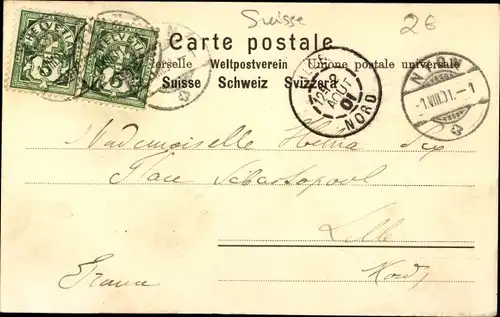 Suisse 2€
Carte postale
Weltpostverein Union postale universale
Suisse Schweiz Svizzera
HELVETIA HELVETIA
5 5
12 2
AOUT
01
NORD
-1.VIII.01.-1
Mademoiselle
Place Sébastopol
Lille
Nord
France